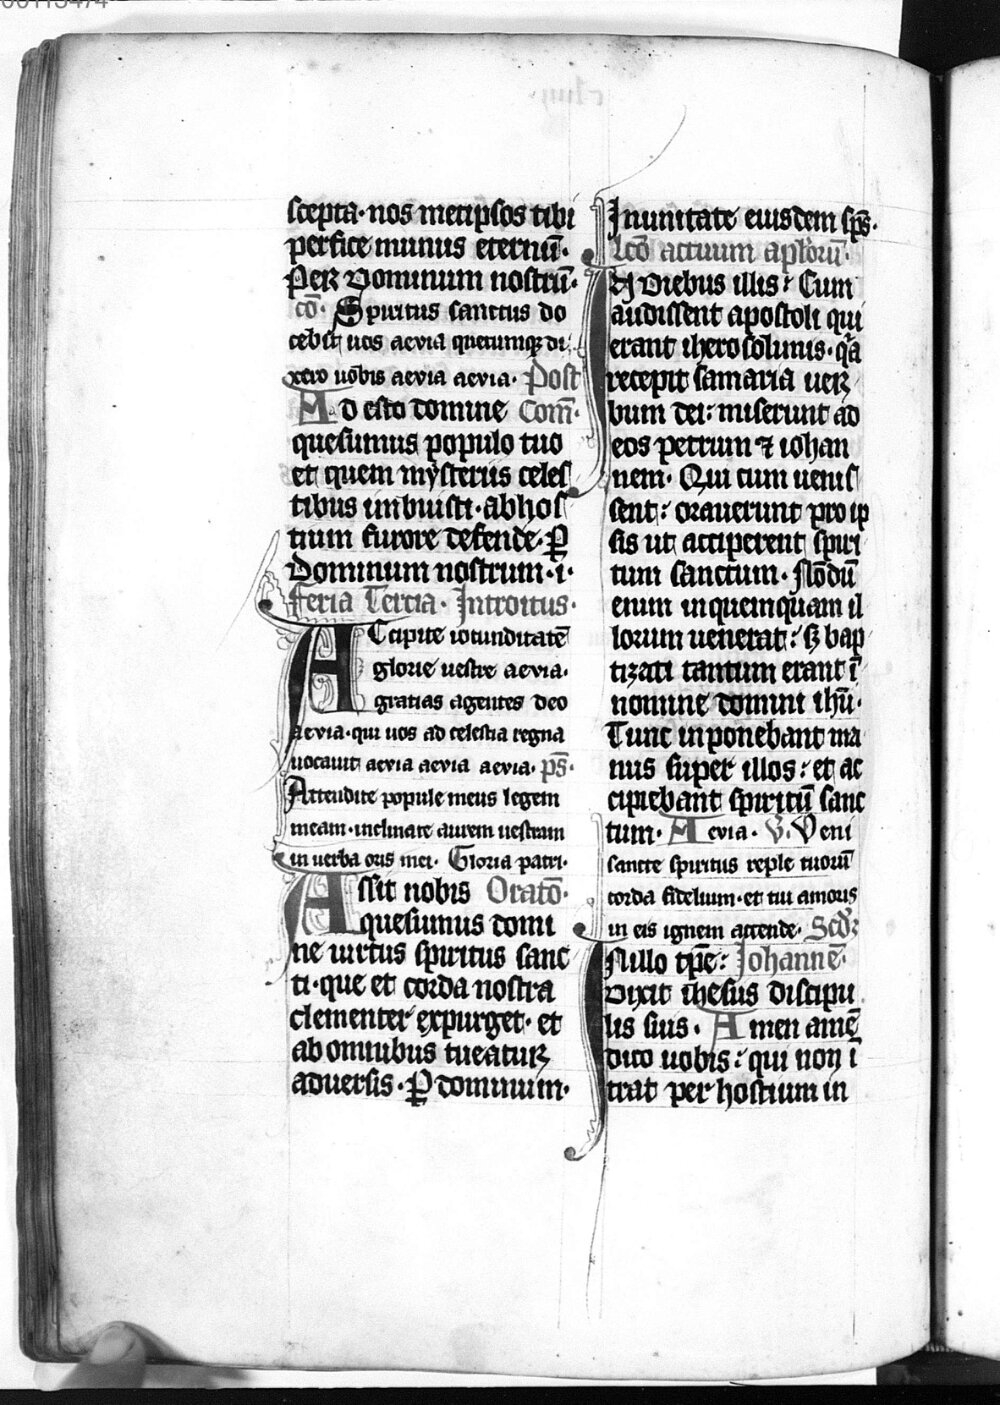 scepta · nos metipsos tibi
perfice munus eternū ·
Per dominum nostrū ·
cō · Spiritus sanctus do
cebit uos aevia quecumqꝫ di
xero uobis aevia aevia · Post
Ad esto domine Com̄ ·
quesumus populo tuo
et quem mysteriis celes
tibus imbuisti · ab hos
tium furore defende · ꝑ
Dominum nostrum · i ·
Feria Tercia · Introitus ·
Accipite iocunditatē
glorie uestre aevia ·
gratias agentes deo
aevia · qui uos ad celestia regna
uocauit aevia aevia aevia · p̄s ·
Attendite popule meus legem
meam · inclinate aurem uestram
in uerba oris mei · Gloria patri ·
Assit nobis Oratō ·
quesumus domi
ne uirtus spiritus sanc
ti · que et corda nostra
clementer expurget · et
ab omnibus tueatur
aduersis · ꝑ dominum ·
In unitate eiusdem sp̄s ·
Lc̄o actuum aplorū ·
In diebus illis : Cum
audissent apostoli qui
erant iherosolimis · qa
recepit samaria uer
bum dei : miserunt ad
eos petrum ⁊ iohan
nem · Qui cum uenis
sent : orauerunt pro ip
sis ut acciperent spiri
tum sanctum · Nōdū
enim in quemquam il
lorum uenerat : s̄ bap
tizati tantum erant ī
nomine domini ihū ·
Tunc inponebant ma
nus super illos : et ac
cipiebant spiritū sanc
tum · Aevia · V̄ · Veni
sancte spiritus reple tuorū
corda fidelium · et tui amoris
in eis ignem accende · Scd̄ꝫ
In illo tp̄e : Johannē ·
Dixit ihesus discipu
lis suis · Amen amē
dico uobis : qui non ī
trat per hostium in